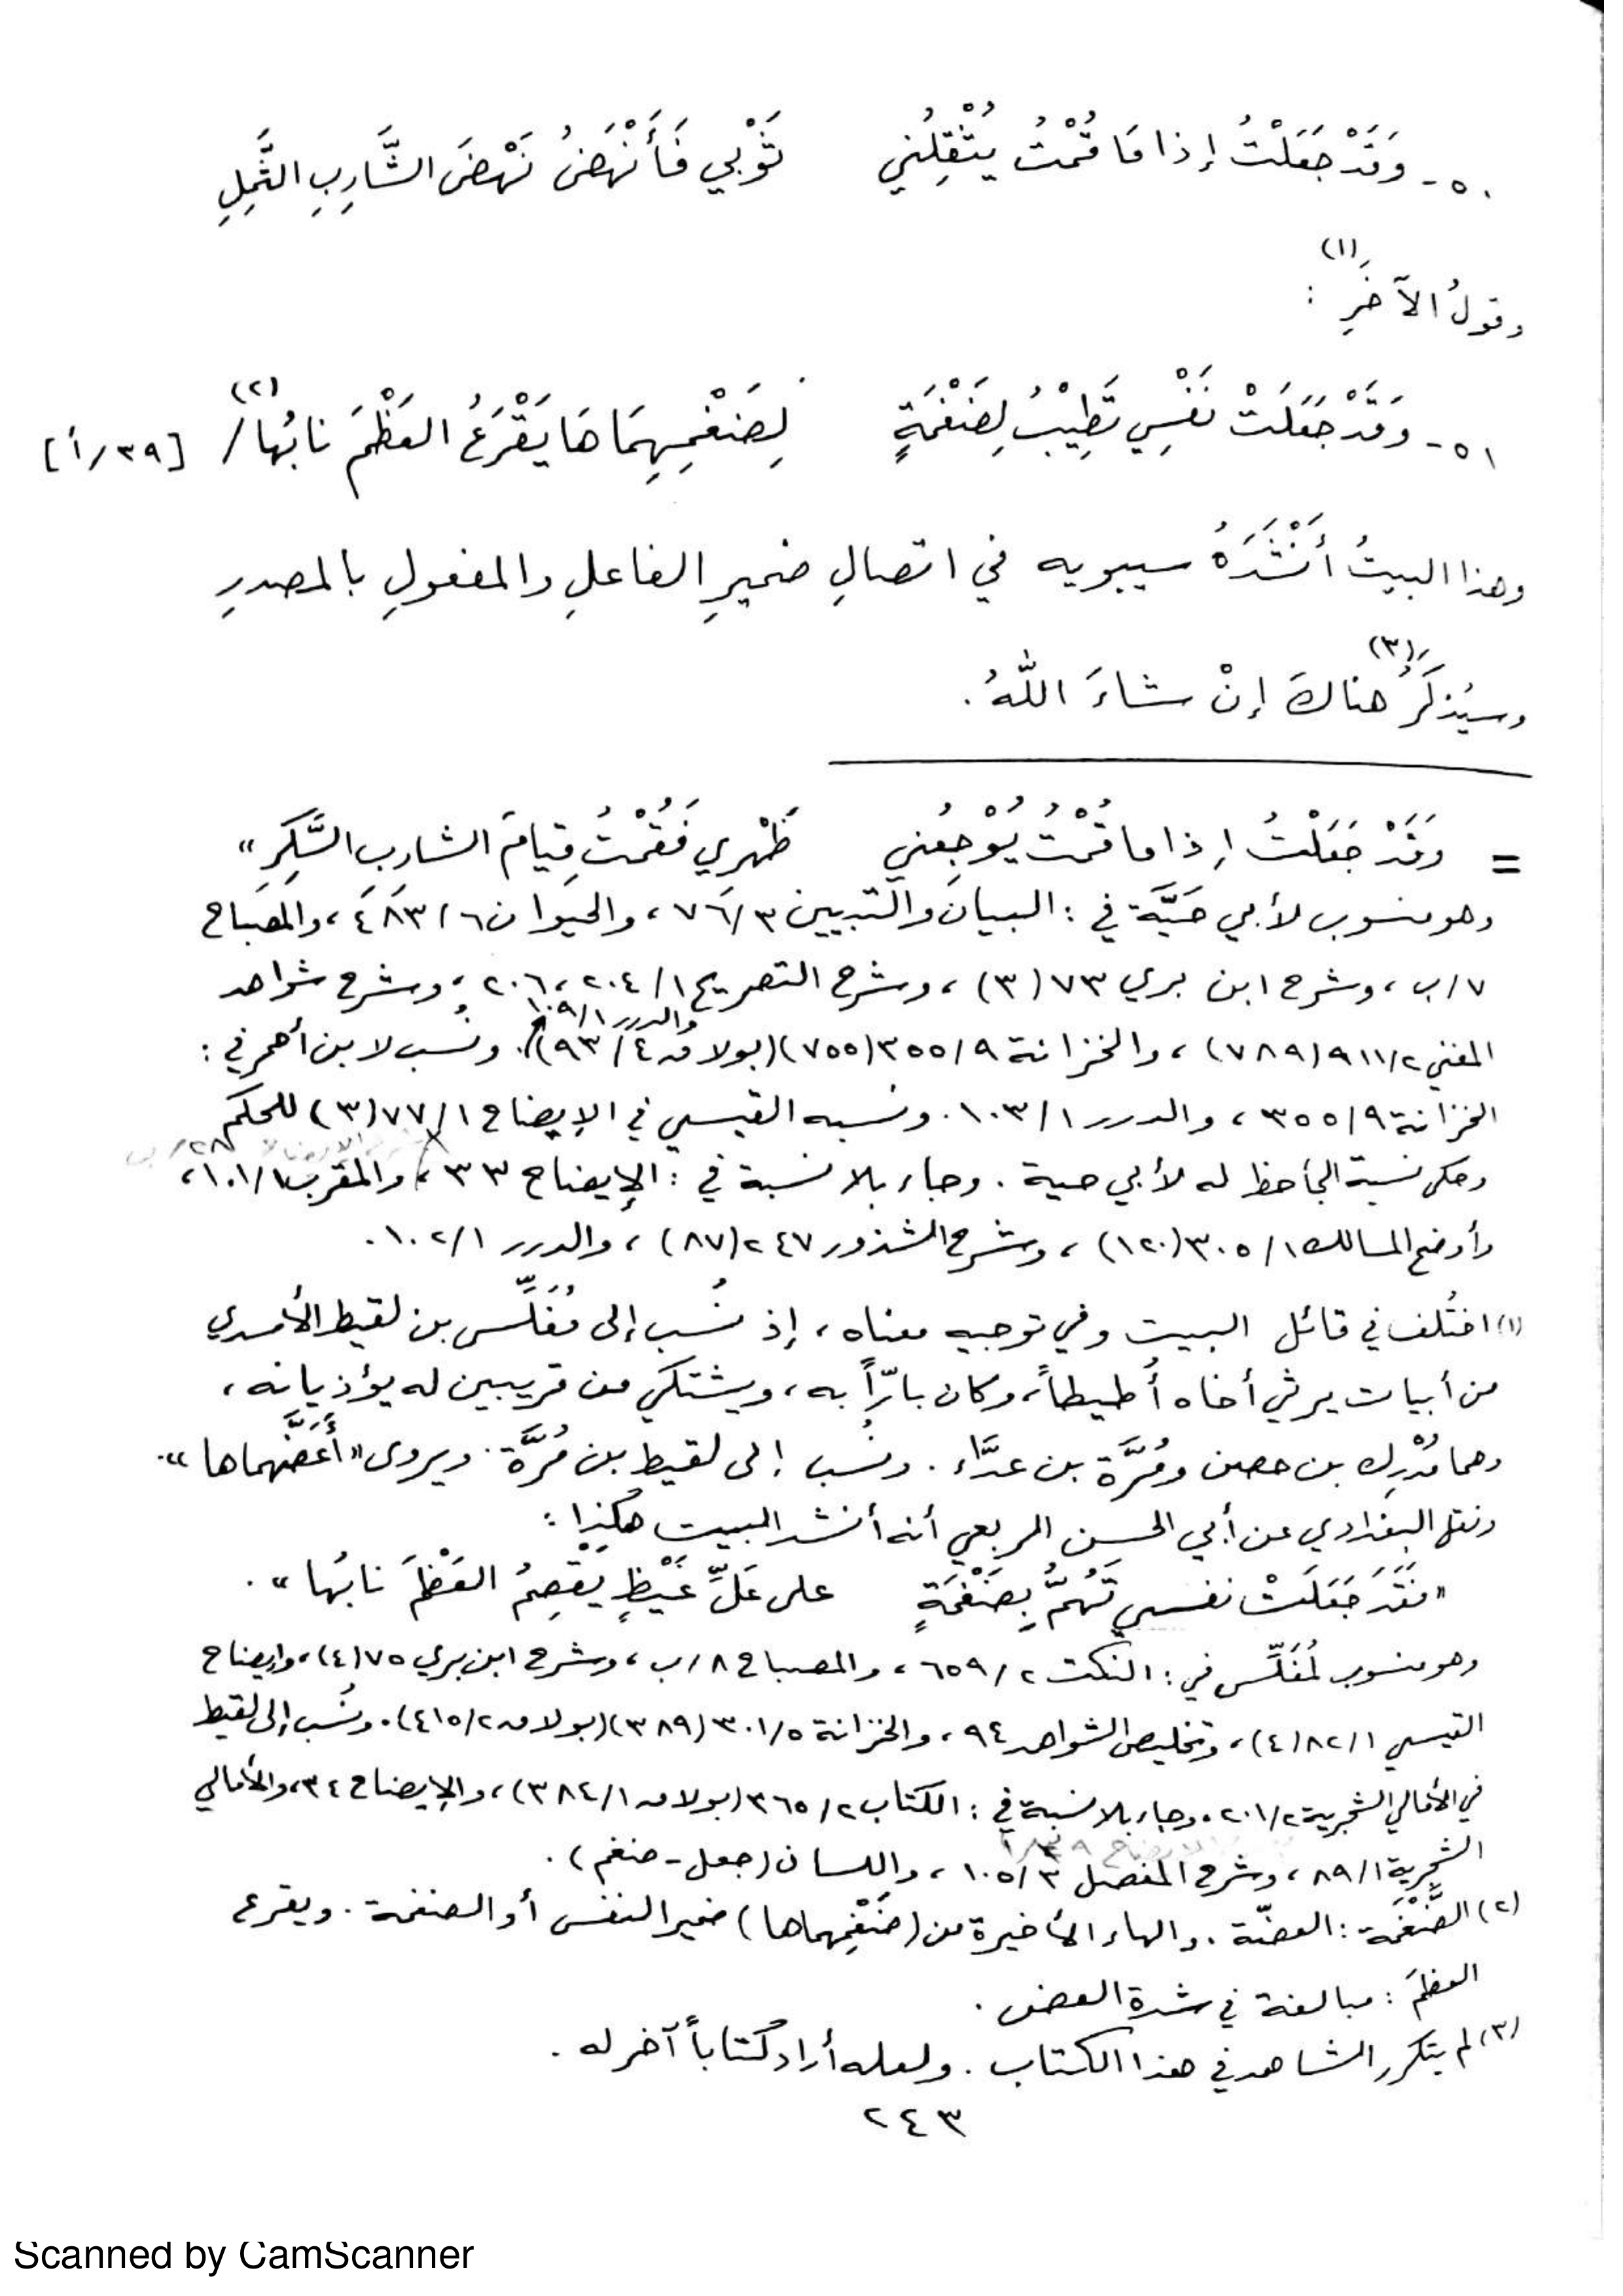 ٥٠ - وَقَدْ جَعَلْتُ إذا مَا قُمْتُ يُثْقِلُني ثَوْبي فَأَنْهَضُ نَهْضَ الشَّارِبِ الثَّمِلِ
وقولُ الآخَرِ (١) :
٥١ - وَقَدْ جَعَلَتْ نَفْسِي تَطِيْبُ لِضَغْمَةٍ لِضَغْمِهِمَاهَا يَقْرَعُ العَظْمَ نابُها (٢) / [٣٩/أ]
وهذا البيتُ أَنْشَدَهُ سيبويه في اتصالِ ضميرِ الفاعلِ والمفعولِ بالمصدرِ
وسيُذكَرُ (٣) هناكَ إنْ شاءَ اللّهُ .
= وَقَدْ جَعَلْتُ إذا ما قُمْتُ يُوْجِعُني ظَهْري فَقُمْتُ قِيامَ الشارب السَّكِرِ »
وهو منسوب لأبي حَيَّة في : البيان والتبيين ٣/٧٦ ، والحيوان ٦/٤٨٣ ، والمصباح
٧/ب ، وشرح ابن بري ٧٣ (٣) ، وشرح التصريح ١/٢٠٤ ، ٢٠٦ ، وشرح شواهد
المغني ٢/٩١١ (٧٨٩) ، والخزانة ٩/٣٥٥ (٧٥٥) (بولاق ٤/٩٣) والدرر ١/١٠٩ . ونُسب لابن أحمر في :
الخزانة ٩/٣٥٥ ، والدرر ١/١٠٣ . ونسبه القيسي في الإيضاح ١/٧٧ (٣) للحكم
وحكى نسبة الجاحظ له لأبي حية . وجاء بلا نسبة في : الإيضاح ٣٣ ، والمقرب ١/١٠١ ،
وأوضح المسالك ١/٣٠٥ (١٢٠) ، وشرح الشذور ٢٤٧ (٨٧) ، والدرر ١/١٠٢ .
(١) اختُلف في قائل البيت وفي توجيه معناه ، إذ نُسب إلى مُغَلِّس بن لقيط الأسدي
من أبيات يرثي أخاه أُطيطاً ، وكان بارّاً به ، ويشتكي من قريبين له يؤذيانه ،
وهما مُدْرِك بن حصن ومُرَّة بن عدَّاء . ونُسب إلى لقيط بن مُرَّة . ويروى « أَعَضَّهماها » .
ونقل البغدادي عن أبي الحسن الربعي أنه أنشد البيت هكذا :
« فَقَدَ جَعَلَتْ نفسي تَهُمُّ بِضَغْمَةٍ على عَلِّ غَيْظٍ يَقْصِمُ العَظْمَ نابُها » .
وهو منسوب لمُغَلِّس في : النكت ٢/٦٥٩ ، والمصباح ٨/ب ، وشرح ابن بري ٧٥ (٤) ، وإيضاح
القيسي ١/٨٢ (٤) ، وتخليص الشواهد ٩٤ ، والخزانة ٥/٣٠١ (٣٨٩) (بولاق ٢/٤١٥) . ونُسب إلى لقيط
في الأمالي الشجرية ٢/٢٠١ . وجاء بلا نسبة في : الكتاب ٢/٣٦٥ (بولاق ١/٣٨٤) ، والإيضاح ٣٤ ، والأمالي
الشجرية ١/٨٩ ، وشرح المفصل ٣/١٠٥ ، واللسان (جعل - ضغم) .
(٢) الضَّغْمَة : العضّة . والهاء الأخيرة من (ضَغْمِهماها) ضمير النفس أو الضغمة . ويقرع
العظمَ : مبالغة في شدة العض .
(٣) لم يتكرر الشاهد في هذا الكتاب . ولعله أراد كتاباً آخر له .
٢٤٣
Scanned by CamScanner